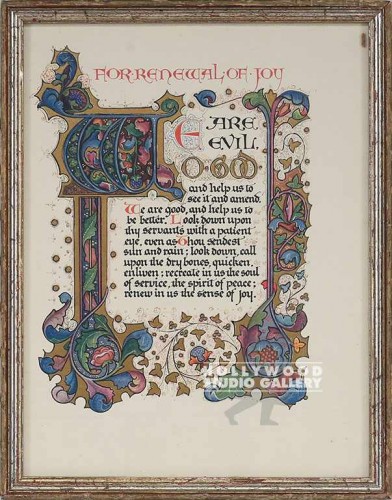 FOR·RENEWAL·OF·JOY
WE ARE
EVIL,
O·GOD
and help us to
see it and amend.
We are good, and help us to
be better. Look down upon
thy servants with a patient
eye, even as Thou sendest
sun and rain; look down, call
upon the dry bones, quicken,
enliven; recreate in us the soul
of service, the spirit of peace;
renew in us the sense of joy.
HOLLYWOOD
STUDIO GALLERY